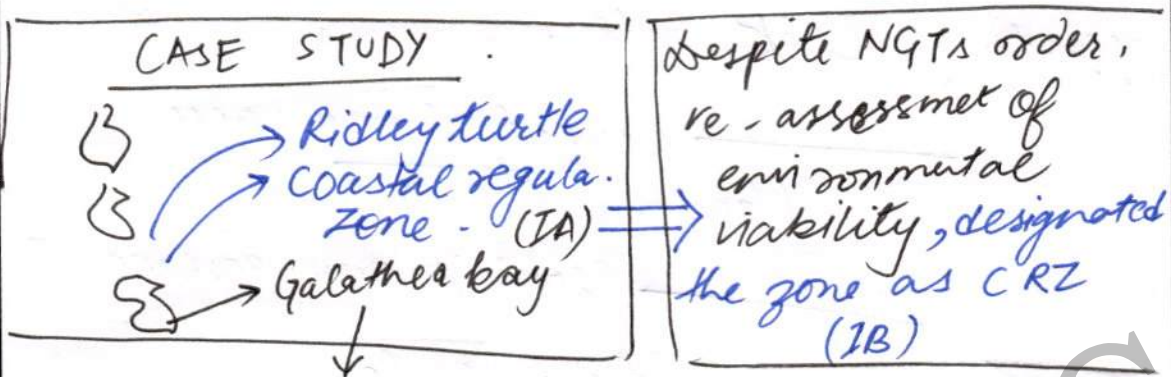 CASE STUDY.
Ridley turtle
Coastal regula.
zone. (IA)
Galathea bay
Despite NGTs order,
re-assessmet of
environmental
viability, designated
the zone as CRZ
(IB)